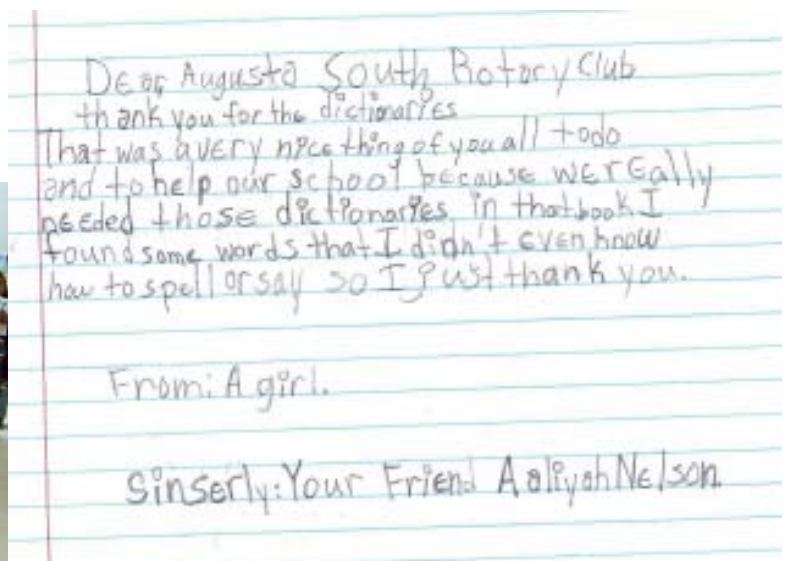 Dear Augusta South Rotary Club
thank you for the dictionaries
That was a very nice thing of you all to do
and to help our school because we really
needed those dictionaries in that book I
found some words that I didn't even know
how to spell or say so I just thank you.
From: A girl.
Sinserly: Your Friend Aaliyah Nelson